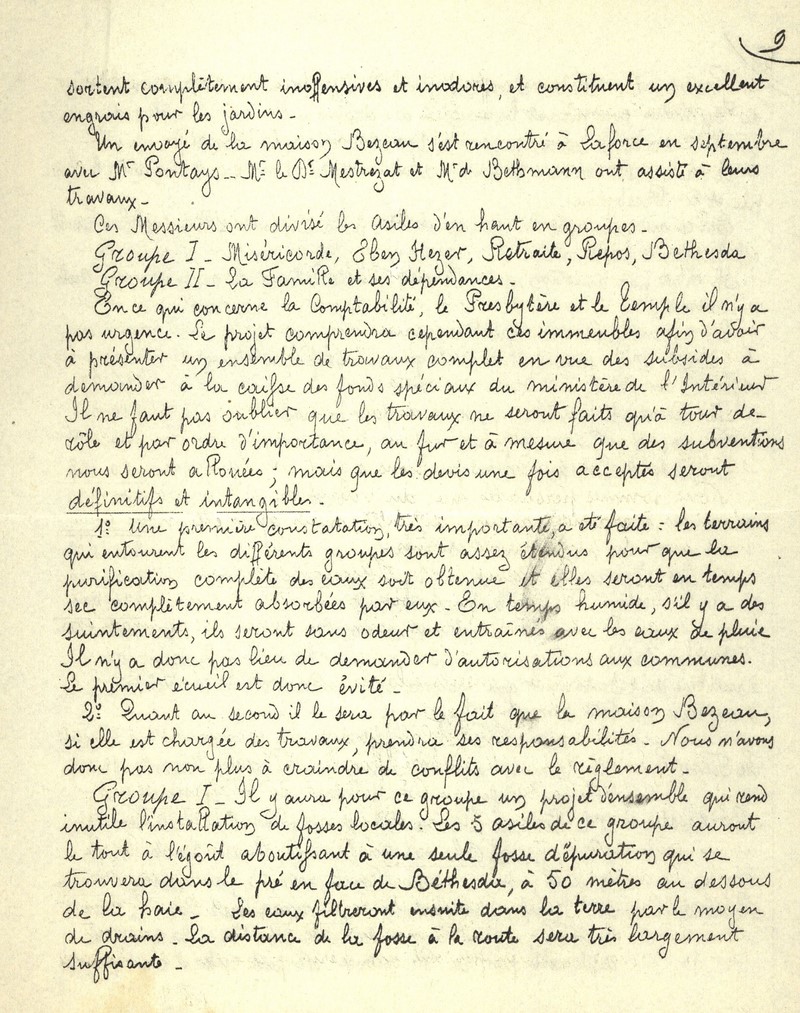 9
sortent complètement inoffensives et inodores, et constituent un excellent
engrais pour les jardins -
Un envoyé de la maison Bezeau s'est rencontré à Laforce en septembre
avec Mr Pontays - Mr le Dr Mestrezat et Mr de Bethmann ont assisté à leurs
travaux -
Ces Messieurs ont divisé les asiles d'en haut en groupes -
Groupe I - Miséricorde, Eben Hezer, Retraite, Repos, Béthesda
Groupe II - La Famille et ses dépendances -
En ce qui concerne la Comptabilité, le Presbytère et le Temple il n'y a
pas urgence. Le projet comprendra cependant ces immeubles afin d'avoir
à présenter un ensemble de travaux complet en vue des subsides à
demander à la caisse des fonds spéciaux du ministère de l'Intérieur
Il ne faut pas oublier que les travaux ne seront faits qu'à tour de-
rôle et par ordre d'importance, au fur et à mesure que des subventions
nous seront allouées ; mais que les devis une fois acceptés seront
définitifs et intangibles -
1º Une première constatation, très importante, a été faite : les terrains
qui entourent les différents groupes sont assez étendus pour que la
purification complète des eaux soit obtenue et elles seront en temps
sec complètement absorbées par eux - En temps humide, s'il y a des
suintements, ils seront sans odeur et entraînés avec les eaux de pluie
Il n'y a donc pas lieu de demander d'autorisations aux communes.
Le premier écueil est donc évité -
2º Quant au second il le sera par le fait que la maison Bezeau,
si elle est chargée des travaux, prendra ses responsabilités - Nous n'avons
donc pas non plus à craindre de conflits avec le règlement -
Groupe I - Il y aura pour ce groupe un projet d'ensemble qui rend
inutile l'installation de fosses locales. Les 5 asiles de ce groupe auront
le tout à l'égoût aboutissant à une seule fosse d'épuration qui se
trouvera dans le pré en face de Béthesda, à 50 mètres au dessous
de la haie - Les eaux filtreront ensuite dans la terre par le moyen
de drains - La distance de la fosse à la route sera très largement
suffisante -